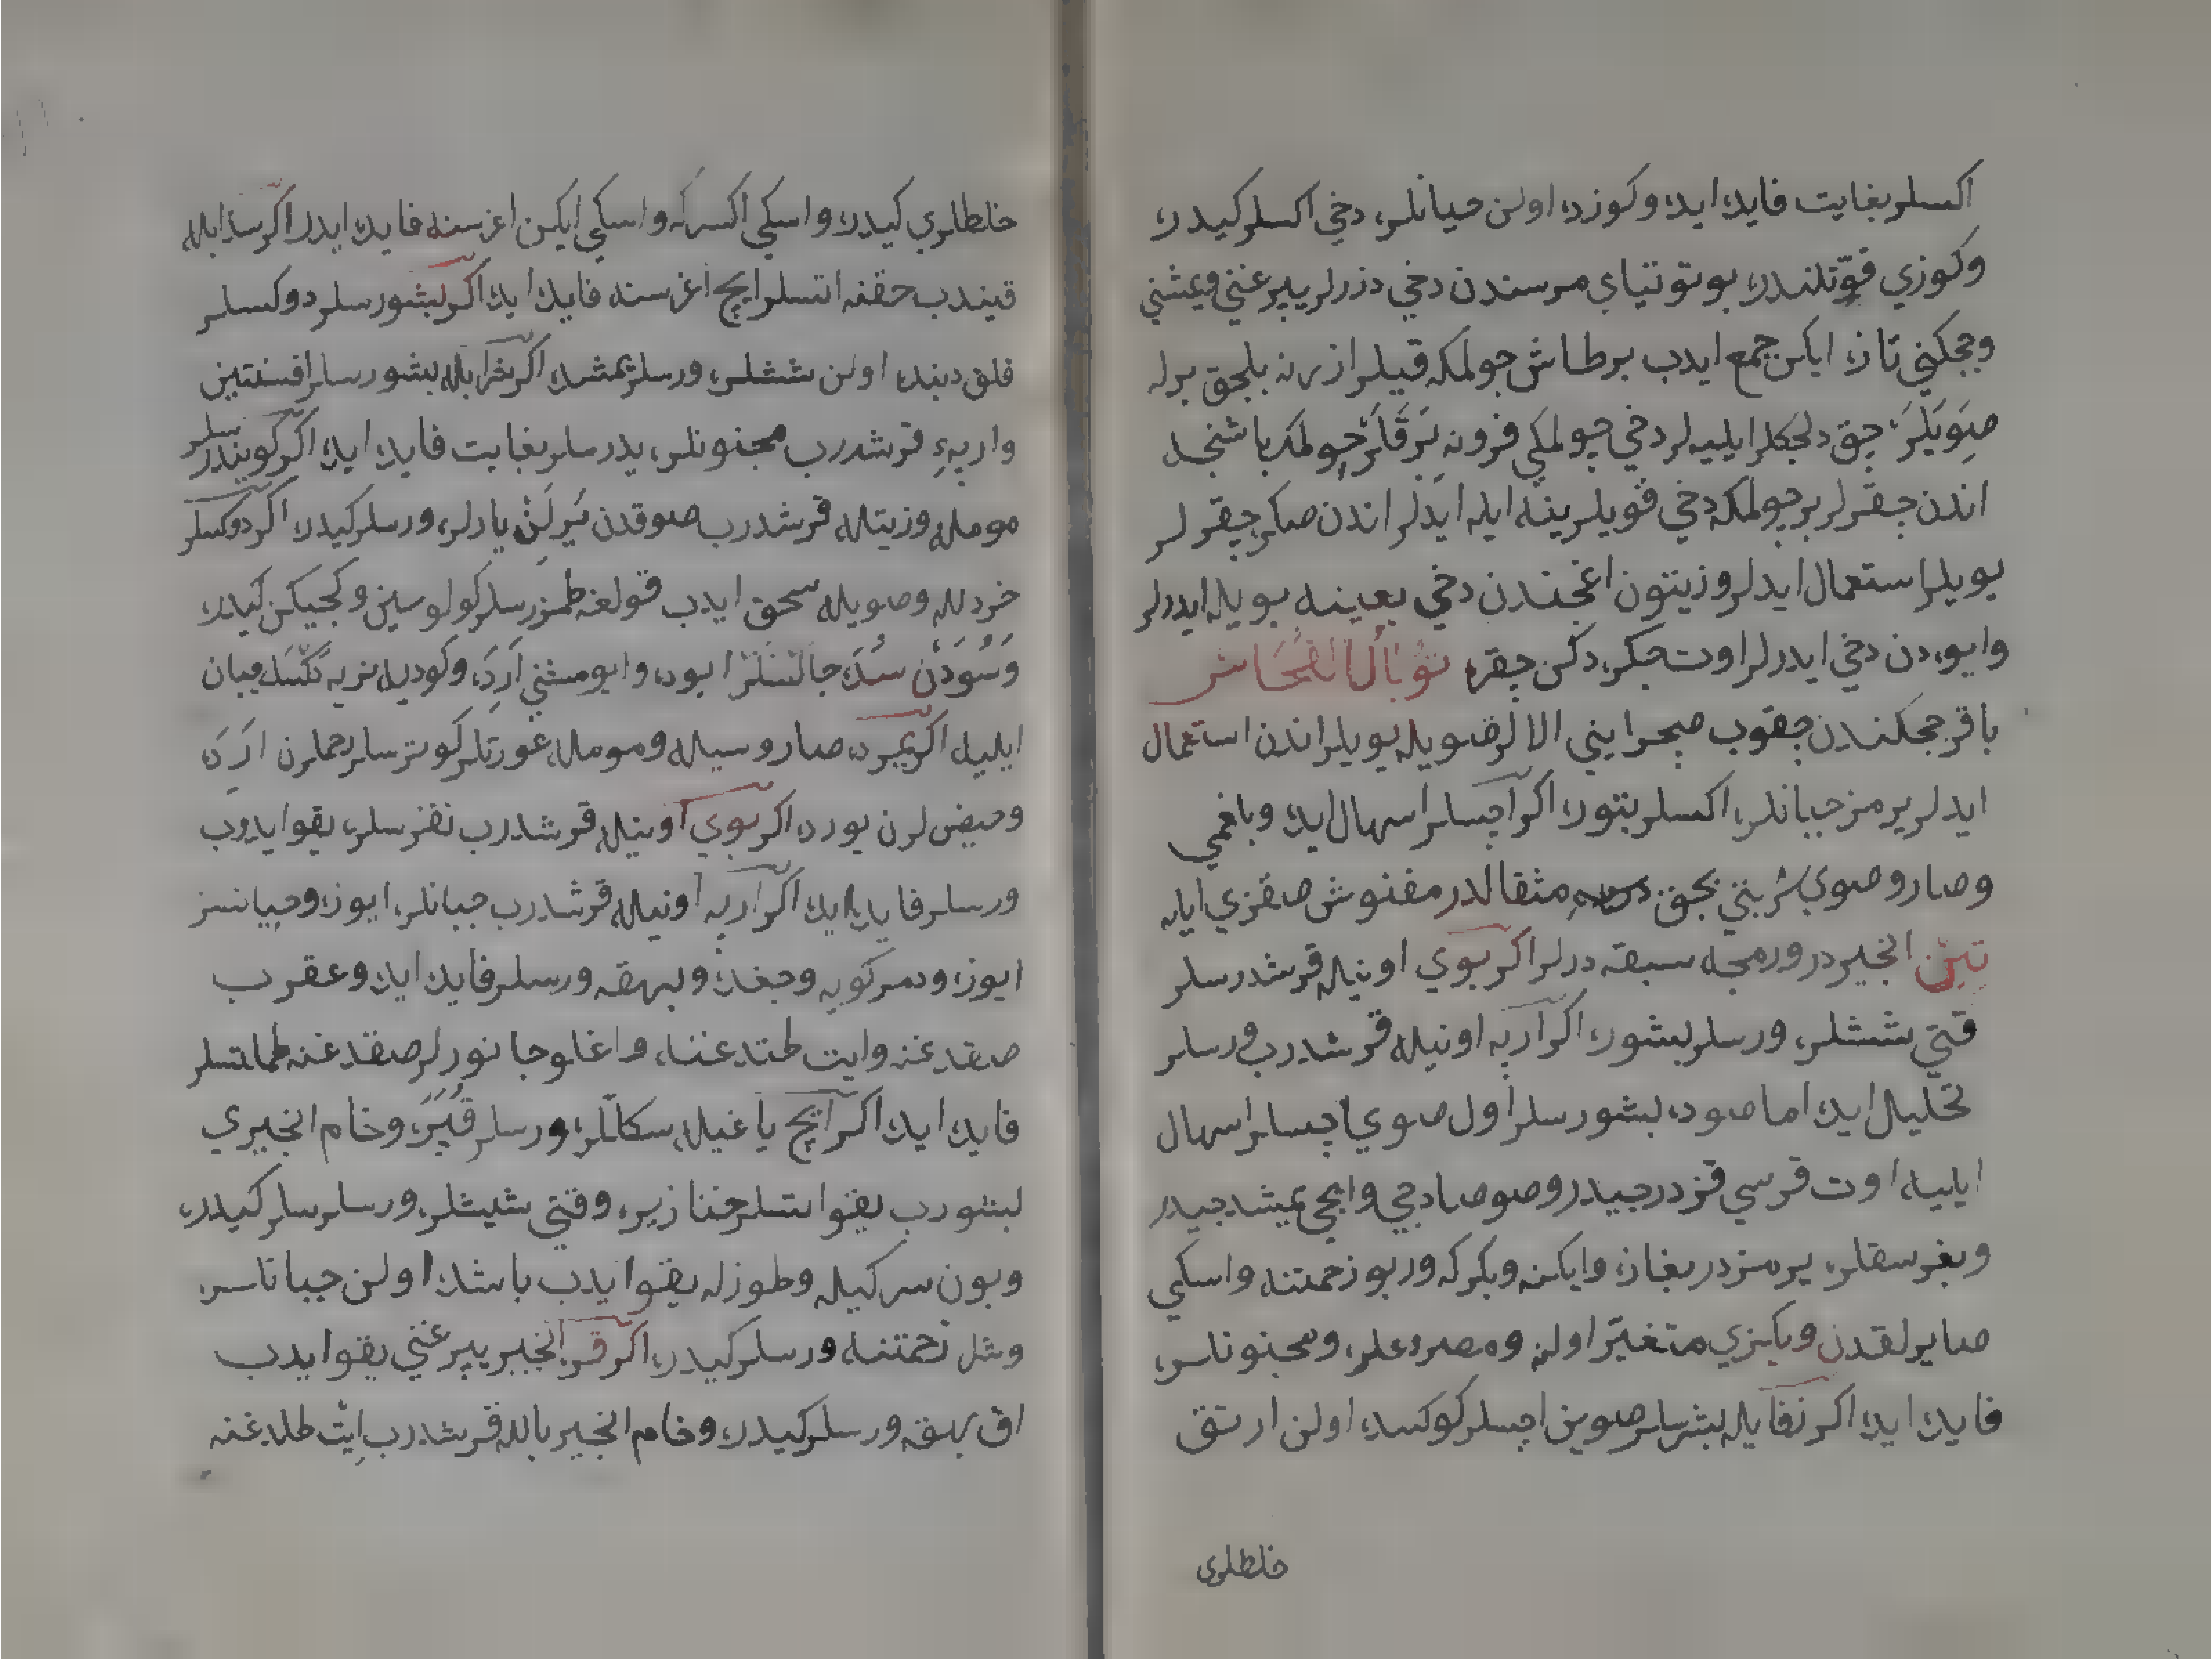 اكسلر بغايت فايده ايده وكوزده اولن حيبانلره دخي اكسلر كيدره
وكوزي قوّتلندره بو توتياي مرسندن دخي دزرلر يپرغني ويمشني
وچچكني تازه ايكن جمع ايدب بر طاش چولمكه قيلر ازرنه بلچق برله
صِوَيَلَر چق دلجكلر ايليه لر دخي چولمكي فرونه بَرقَلَر چولمك باشنجه
اندن چقرلر بر چولمكه دخي قويلر ينه ايله ايدلر اندن صكره چقرلر
يويلر استعمال ايدلر وزيتون اغجندن دخي بعينه بويله ايدرلر
وايوه دن دخي ايدرلر اوت چكر دكن چقره توبال النحاس
باقر چچكندن چقوب صچراينى الالر صويله يويلر اندن استعمال
ايدلر يرمز حيبانلره اكسلر بتوره اكر اچسلر اسهال ايده وبلغمي
وصارو صوي شربتي بچق مثقالدر مفنوش صقزي ايله
تين انجيردر ورمجه سبقه درلر اكر بوي اونيله قرشدرسلر
قتي ششلره ورسلر بشوره اكر اربه اونيله قرشدرب ورسلر
تحليل ايده اما صوده بشورسلر اول صوي اچسلر اسهال
ايليه اوت قرسي قزدرجيدر وصوصادجي وايجي يمشدجيدر
وبغرسقلره يرمزدر بغازه وايكنه وبكركه وربو زحمتنه واسكي
صايرلقدن وبكزي متغيّر اولنه ومصروعلره ومجنونلره
فايده ايده اكر زفايله بشرسلر صوين اچسلر كوكسده اولن ارتق
خلطلري
خلطلري كيدره واسكي اكسركه واسكي ايكن اغرسنه فايده ايدر اكر سذابله
قيندب حقنه اتسلر ايچ اغرسنه فايده ايده اكر بشورسلر دوكسلر
قلق دبنده اولن ششلره ورسلر يمشده اكر شرابله بشورسلر افسنتين
واربه قرشدرب مجنونلره يدرسلر بغايت فايده ايده اكر كويندرسلر
موميله وزيتله قرشدرب صوقدن يَرِلَن يارلره ورسلر كيدره اكر دوكسلر
خردلله وصويله سحق ايدب قولغه طمزرسلر كولوسين وكجيكن كيدره
وَسُودَن سُدَ جالنسلر ايوده وايومشني اَرِدَه وكوديله نزيه كسك ميان
ايليه اكر يمرده صارو سيله وموميله عورتلر كوترسلر رحملرن اَرِدَه
وحيضلرن يورده اكر بوي اونيله قرشدرب نقرسلره يقو ايدوب
ورسلر فايده ايده اكر اربه اونيله قرشدرب حيبانلره ايوزه وحيبانسز
ايوزه ودمركويه وچغده وبهقه ورسلر فايده ايده وعقرب
صقدغنه وايت طتدغنه واغلو جانورلر صقدغنه طملتسلر
فايده ايده اكر ايچ ياغيله سكللره ورسلر قُپَرَه وخام انجيري
بشورب يقو اتسلر خنازيره وقتي شيشلره ورسلر كيدره
وبون سركيله وطوزله يقو ايدب باشده اولن حيبانلره
وشل زحمتنه ورسلر كيدره اكر قره انجير يپرغني يقو ايدب
اق بهقه ورسلر كيدره وخام انجير بالله قرشدرب ايت طلدغنه